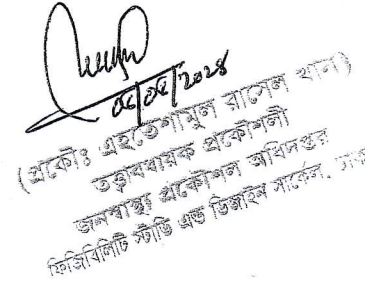 ০৫/০৫/২০২৪
(প্রকৌঃ এহতেশামুল রাসেল খান)
তত্ত্বাবধায়ক প্রকৌশলী
জনস্বাস্থ্য প্রকৌশল অধিদপ্তর
ফিজিবিলিটি স্টাডি এন্ড ডিজাইন সার্কেল,